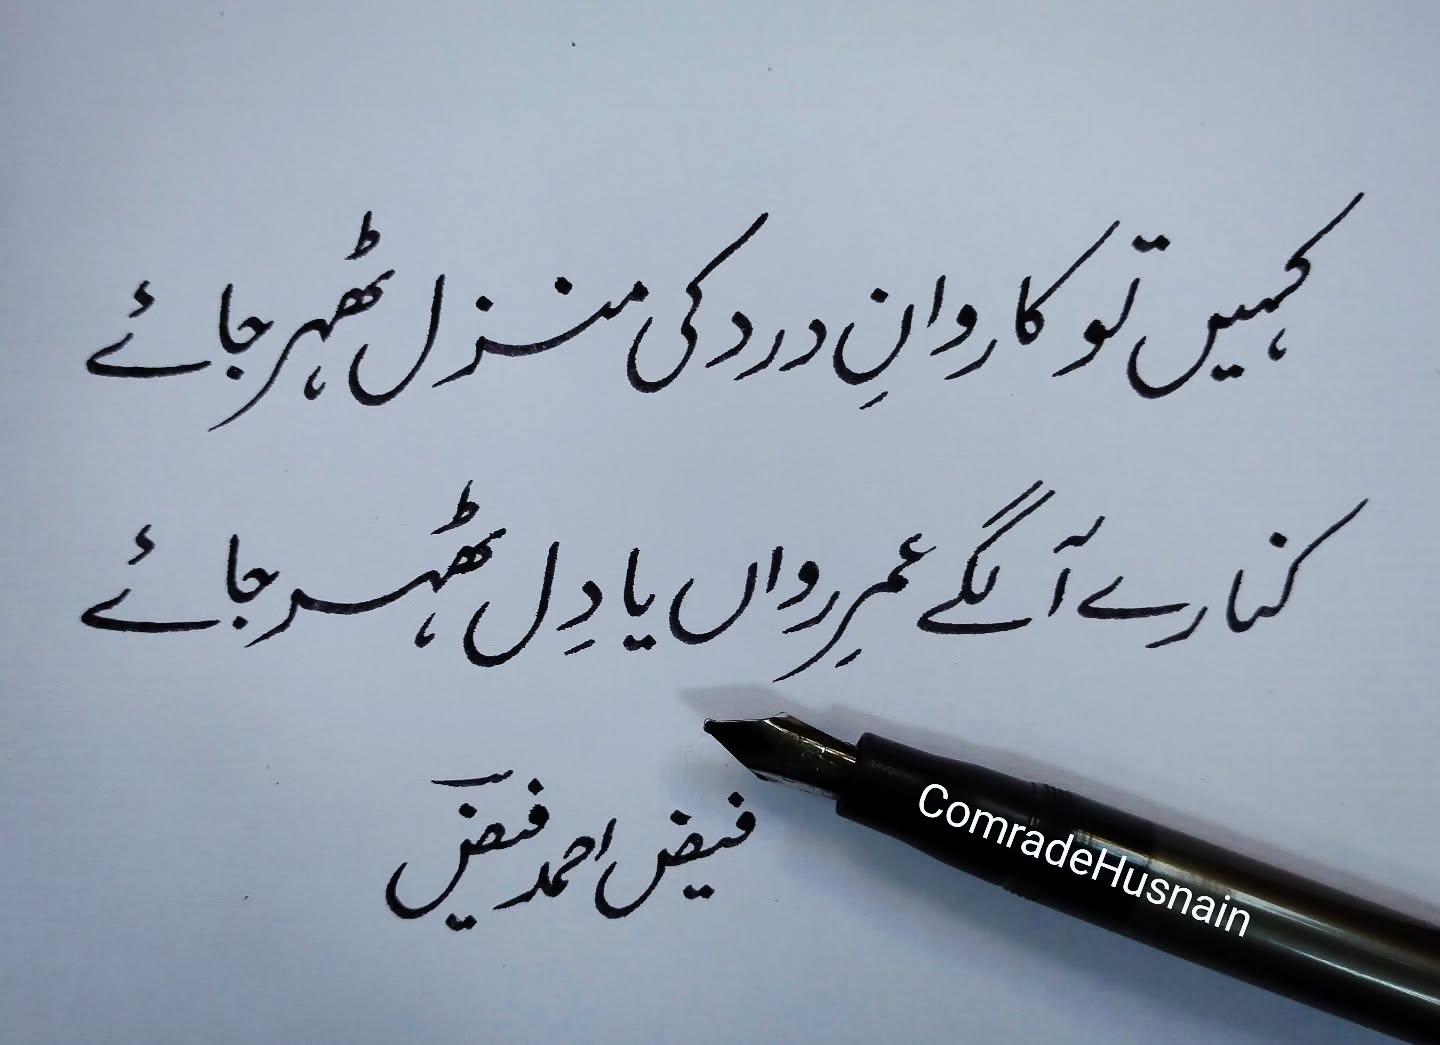 کہیں تو کاروانِ درد کی منزل ٹھہر جائے
کنارے آ لگے عمرِ رواں یا دِل ٹھہر جائے
فیض احمد فیضؔ
ComradeHusnain